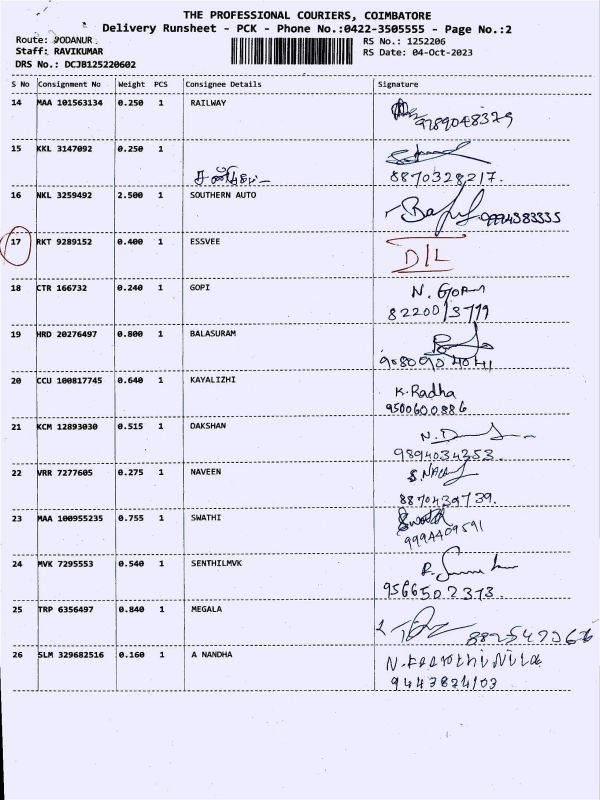 THE PROFESSIONAL COURIERS, COIMBATORE
Delivery Runsheet - PCK - Phone No.:0422-3505555 - Page No.:2
Route: PODANUR
RS No.: 1252206
Staff: RAVIKUMAR
RS Date: 04-Oct-2023
DRS No.: DCJB125220602
S No Consignment No Weight PCS Consignee Details Signature
14 MAA 101563134 0.250 1 RAILWAY
9789048379
15 KKL 3147092 0.250 1
8870328217.
16 NKL 3259492 2.500 1 SOUTHERN AUTO
9994383335
17 RKT 9289152 0.400 1 ESSVEE D/L
18 CTR 166732 0.240 1 GOPI N. GOPI
8220013719
19 HRD 20276497 0.800 1 BALASURAM
20 CCU 100817745 0.640 1 KAYALIZHI K.Radha
9500600886
21 KCM 12893030 0.515 1 DAKSHAN
9894034353.
22 VRR 7277605 0.275 1 NAVEEN
8870439739.
23 MAA 100955235 0.755 1 SWATHI Swathi
9994409591
24 MVK 7295553 0.540 1 SENTHILMVK
9566502373.
25 TRP 6356497 0.840 1 MEGALA
26 SLM 329682516 0.160 1 A NANDHA
9443824103